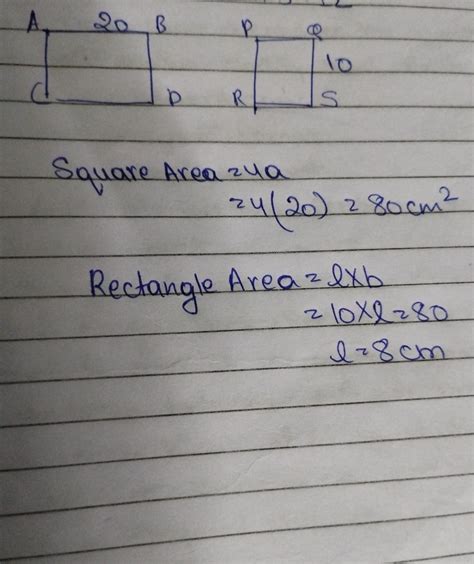 A 20 B P Q
10
C D R S
Square Area = 4a
= 4(20) = 80cm²
Rectangle Area = l×b
= 10×l = 80
l = 8cm